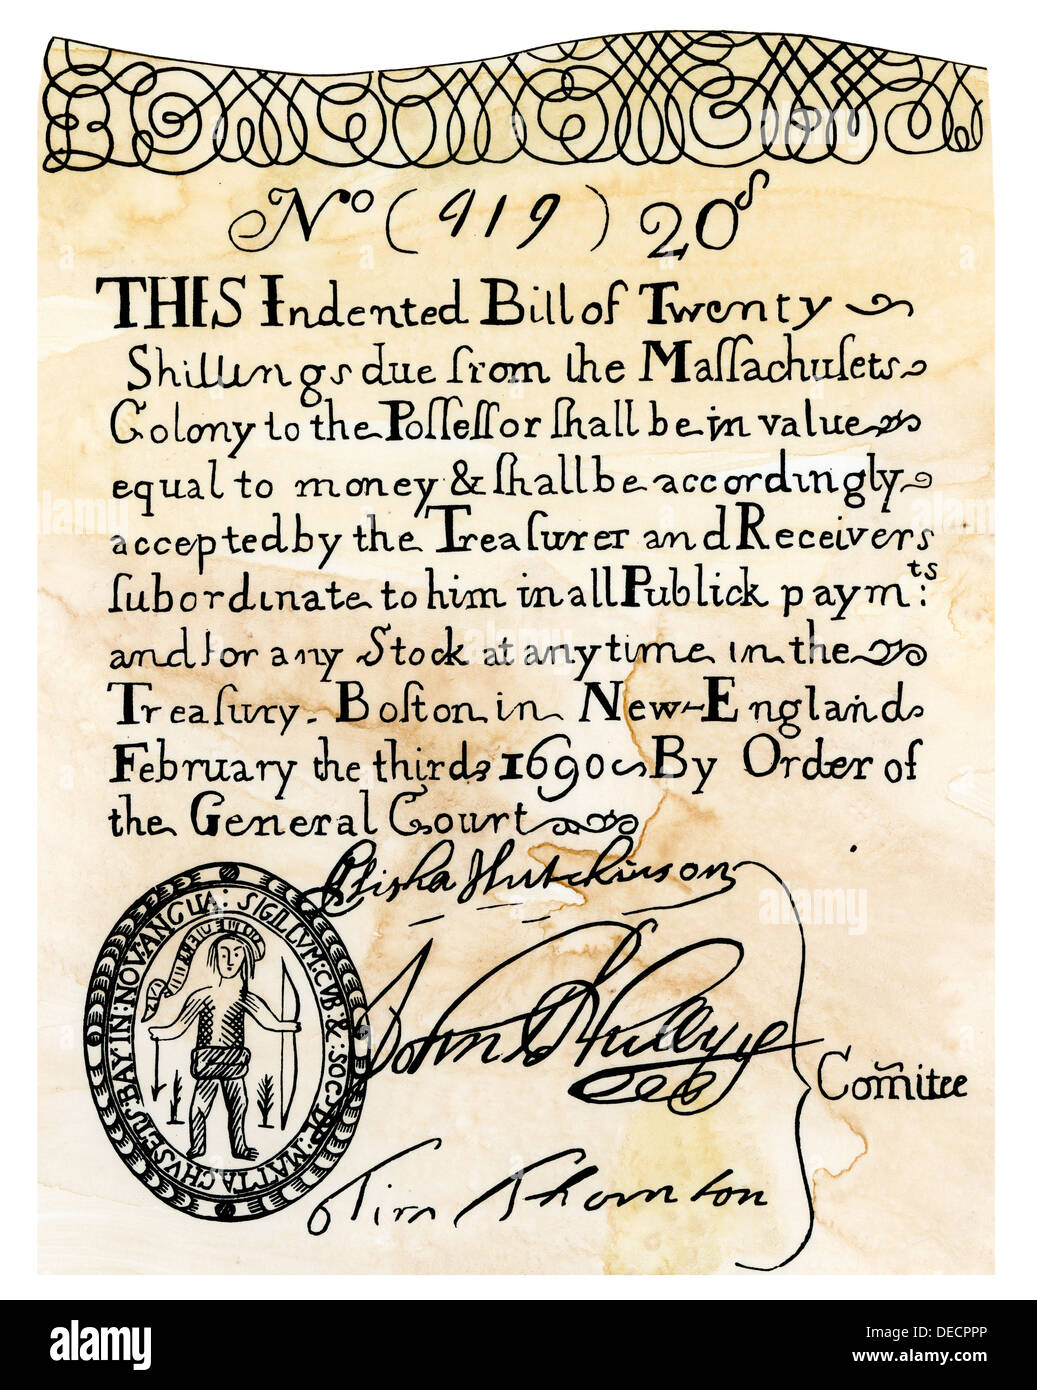 No (919) 20s
THIS Indented Bill of Twenty
Shillings due from the Maſſachuſets
Colony to the Poſſeſſor ſhall be in value
equal to money & ſhall be accordingly
accepted by the Treaſurer and Receivers
ſubordinate to him in all Publick paym:ts
and for any Stock at any time in the
Treaſury. Boſton in New-England
February the third 1690 By Order of
the General Court
Elisha Hutchinson
SIGILLUM: CVB & SOC: DE: MATTACHVSETS: BAY: IN: NOV: ANGLIA:
John
Com̃itee
Tim Thornton
alamy
Image ID: DECPPP
www.alamy.com